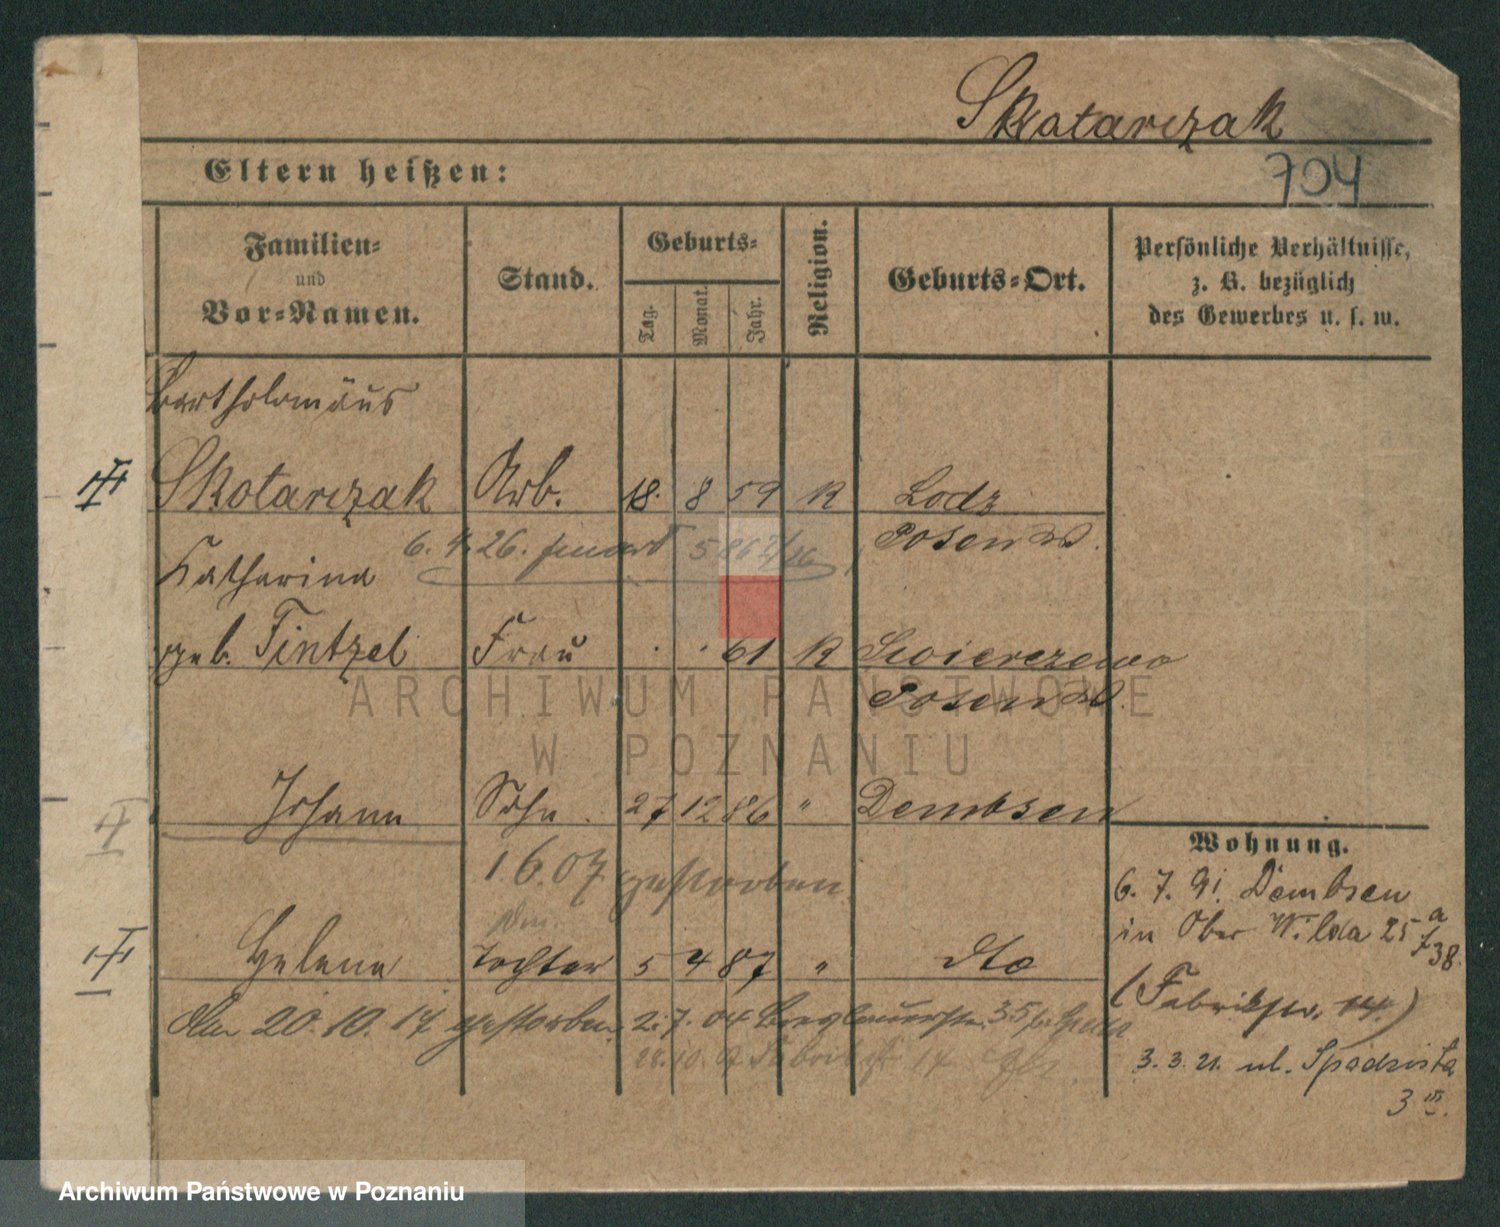 Skotarczak
704
Eltern heißen:
Familien-
und
Vor-Namen.
Stand.
Geburts-
Tag.
Monat.
Jahr.
Religion.
Geburts-Ort.
Persönliche Verhältnisse,
z. B. bezüglich
des Gewerbes u. s. w.
Bartholomäus
Skotarczak Arb. 18. 8 59 K Lodz
6. 4. 26. Posen W.
Katharina
geb. Tintzel Frau . . 61 K Swierczewo
Posen W.
Johann Sohn. 27 12 86 " Dembsen
1.6.07 gestorben
Helene Tochter 5 4 87 " dto
den 20. 10. 17. gestorben. 2. 7. 04 35
28.10. Fabrikstr 14
Wohnung.
6. 7. 91. Dembsen
in Ober Wilda 25 a
/38.
(Fabrikstr. 14.)
3. 3. 21. ul. Spadzista
3 III.
ARCHIWUM PAŃSTWOWE
W POZNANIU
Archiwum Państwowe w Poznaniu